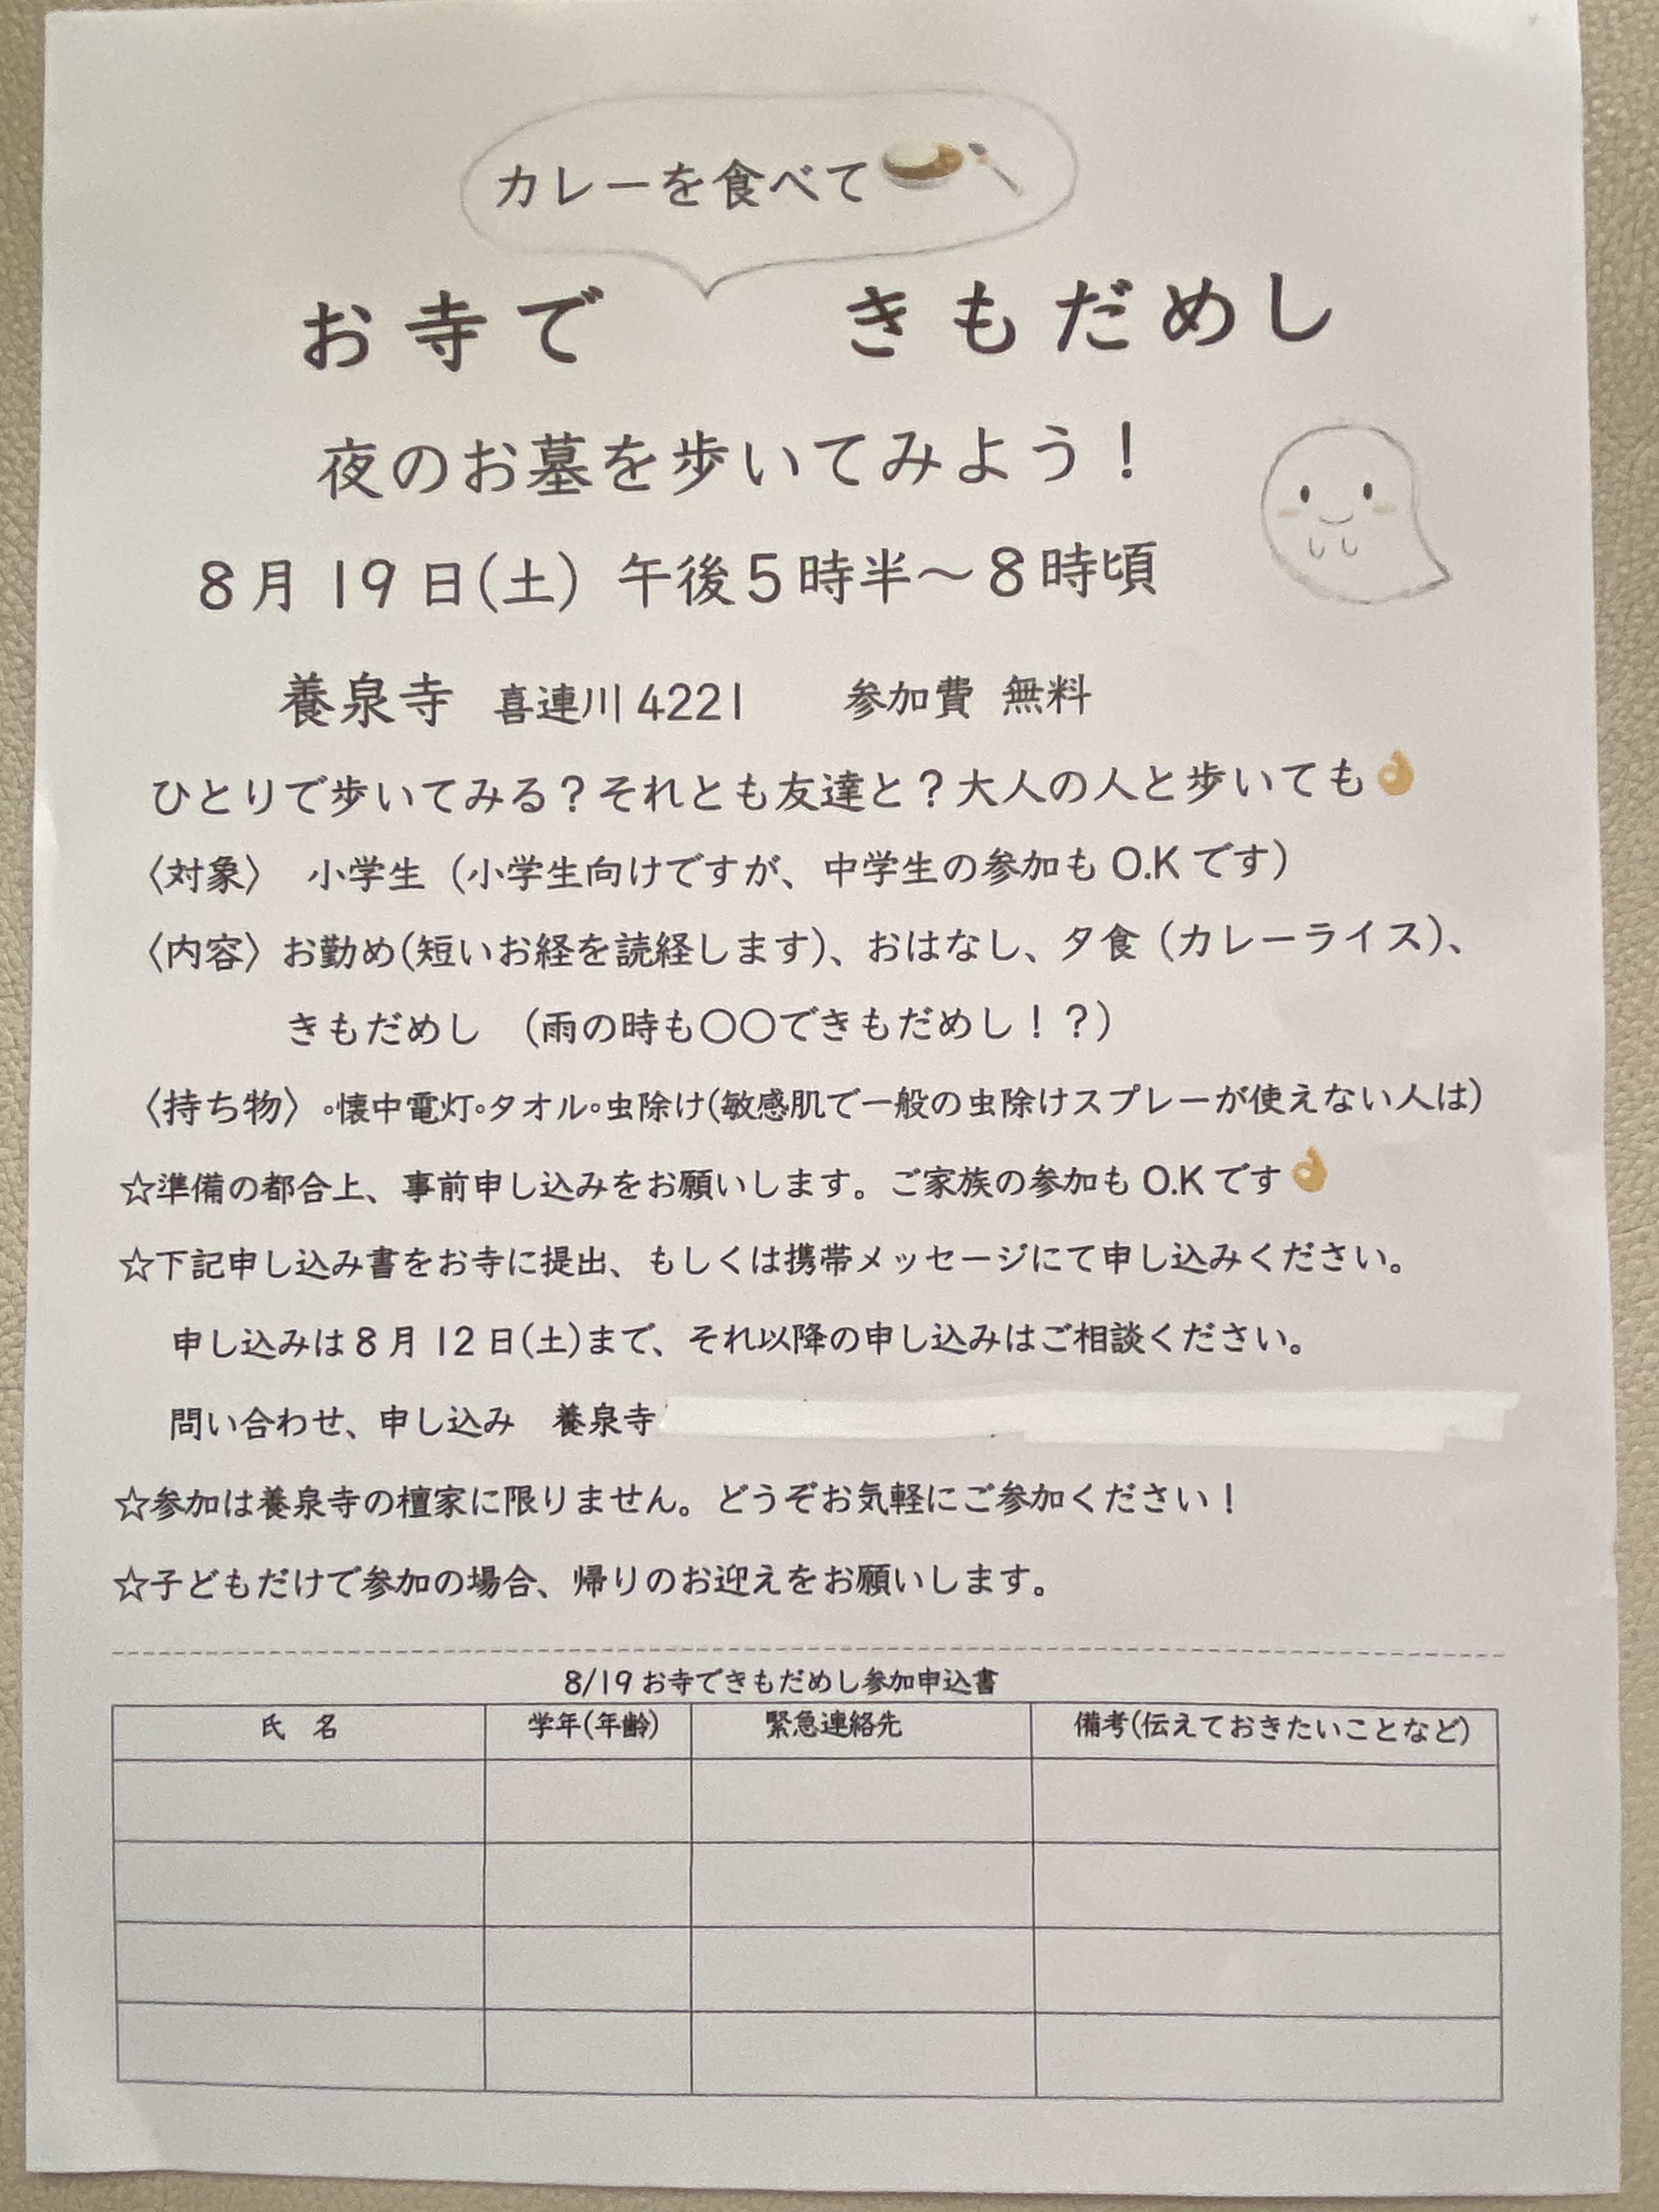 カレーを食べて
お寺で　きもだめし
夜のお墓を歩いてみよう！
8月19日(土) 午後5時半～8時頃
養泉寺　喜連川4221　参加費 無料
ひとりで歩いてみる？それとも友達と？大人の人と歩いても👌
〈対象〉　小学生（小学生向けですが、中学生の参加もO.Kです）
〈内容〉お勤め(短いお経を読経します)、おはなし、夕食（カレーライス）、
きもだめし　（雨の時も〇〇できもだめし！？）
〈持ち物〉∘懐中電灯∘タオル∘虫除け(敏感肌で一般の虫除けスプレーが使えない人は)
☆準備の都合上、事前申し込みをお願いします。ご家族の参加もO.Kです👌
☆下記申し込み書をお寺に提出、もしくは携帯メッセージにて申し込みください。
申し込みは8月12日(土)まで、それ以降の申し込みはご相談ください。
問い合わせ、申し込み　養泉寺
☆参加は養泉寺の檀家に限りません。どうぞお気軽にご参加ください！
☆子どもだけで参加の場合、帰りのお迎えをお願いします。
8/19お寺できもだめし参加申込書
氏　名　学年(年齢)　緊急連絡先　備考(伝えておきたいことなど)